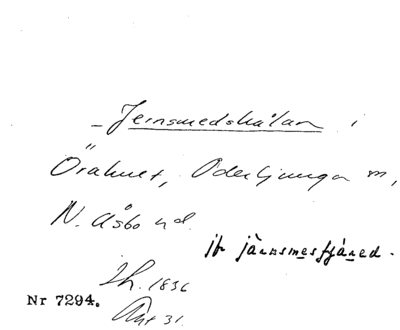 – Jernsmedshålan i
Örahult, Oderljunga sn,
N. Åsbo hd.
jfr järnsmesfjäred.
Lh. 1836
Nr 7294.
Akt 31.